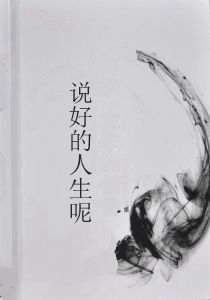 说好的人生呢